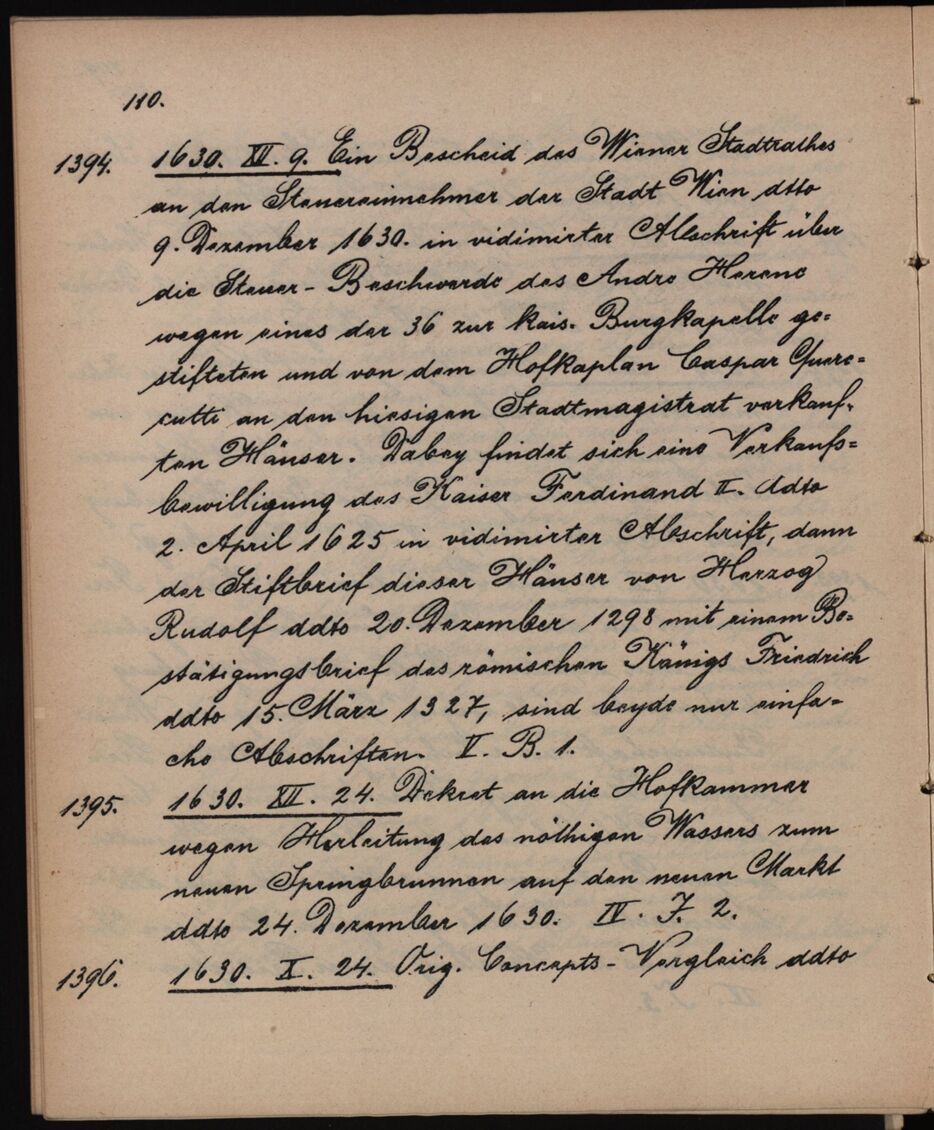 110.
1394. 1630. XII. 9. Ein Bescheid des Wiener Stadtrathes
an den Steuereinnehmer der Stadt Wien ddto
9. Dezember 1630. in vidimirter Abschrift über
die Steuer-Beschwerde des Andre Herenc
wegen eines der 36 zur kais. Burgkapelle ge=
stifteten und von dem Hofkaplan Caspar Quere=
cutti an den hiesigen Stadtmagistrat verkauf=
ten Häuser. Dabey findet sich eine Verkaufs=
bewilligung des Kaiser Ferdinand II. ddto
2. April 1625 in vidimirter Abschrift, dann
der Stiftbrief dieser Häuser von Herzog
Rudolf ddto 20. Dezember 1298 mit einem Be=
stätigungsbrief des römischen Königs Friedrich
ddto 15. März 1327, sind beyde nur einfa=
che Abschriften. V. B. 1.
1395. 1630. XII. 24. Dekret an die Hofkammer
wegen Herleitung des nöthigen Wassers zum
neuen Springbrunnen auf den neuen Markt
ddto 24. Dezember 1630. IV. J. 2.
1396. 1630. X. 24. Orig. Concepts-Vergleich ddto